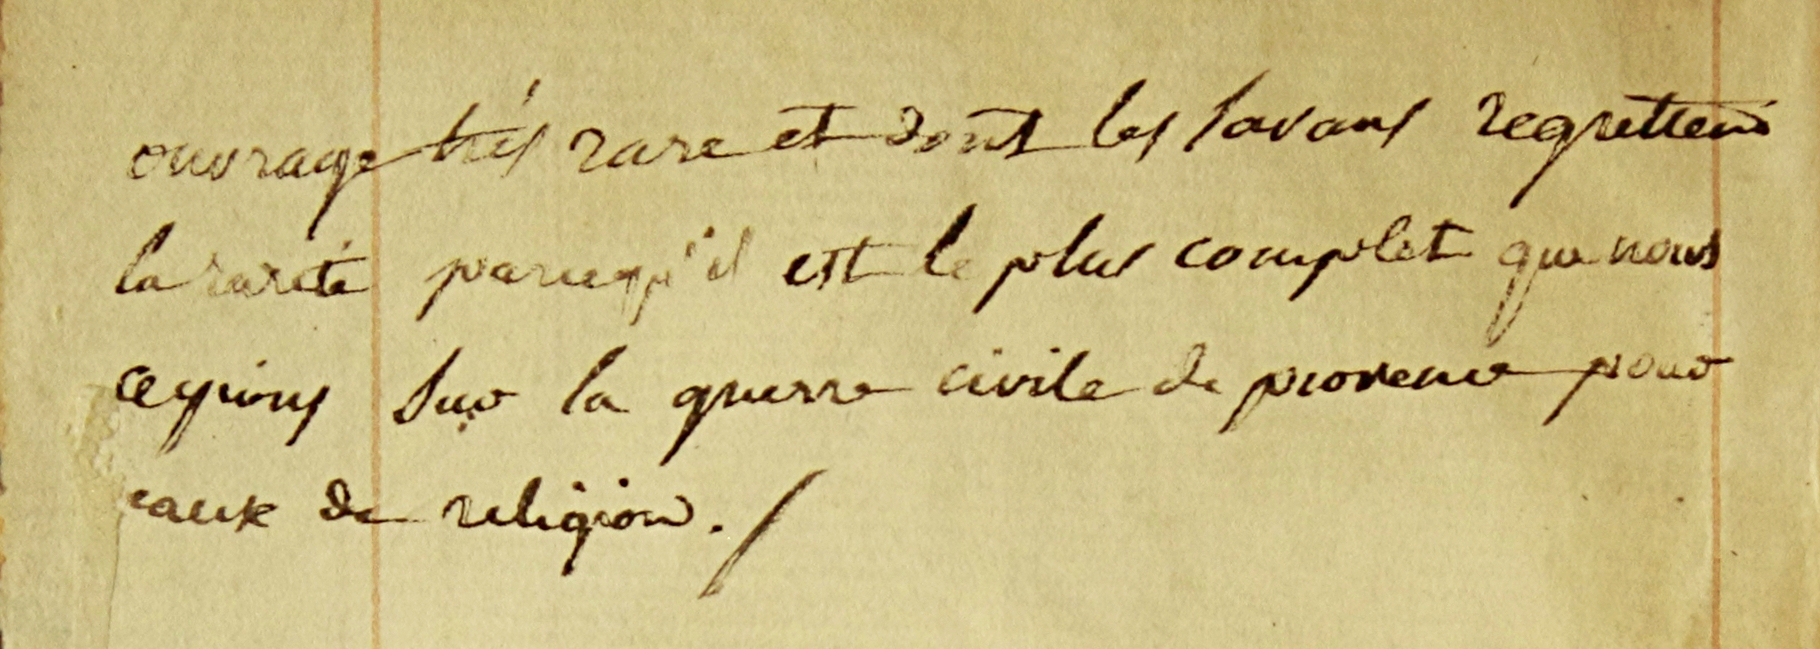 ouvrage très rare et dont les savans regrettent
la rareté parcequ'il est le plus complet que nous
sur la guerre civile de provence pour
de religion./